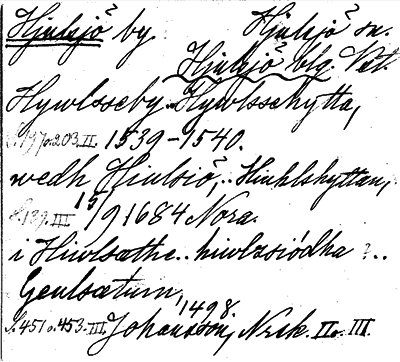 Hjulsjö by Hjulsjö sn.
Hjulsjö blg. Vet.
Hywlsseby.. Hywlssehytta,
S. 197 o. 203. II. 1539-1540.
wedh Hiulsiö,.. Hiuhlshyttan,
S. 139. III 15/9 1684 Nora.
i Hiwlsæthe.. hiwlzsiódha ..
Genlsætum, 1498.
S. 451 o. 453. III. Johansson, Nrsk. II o. III.